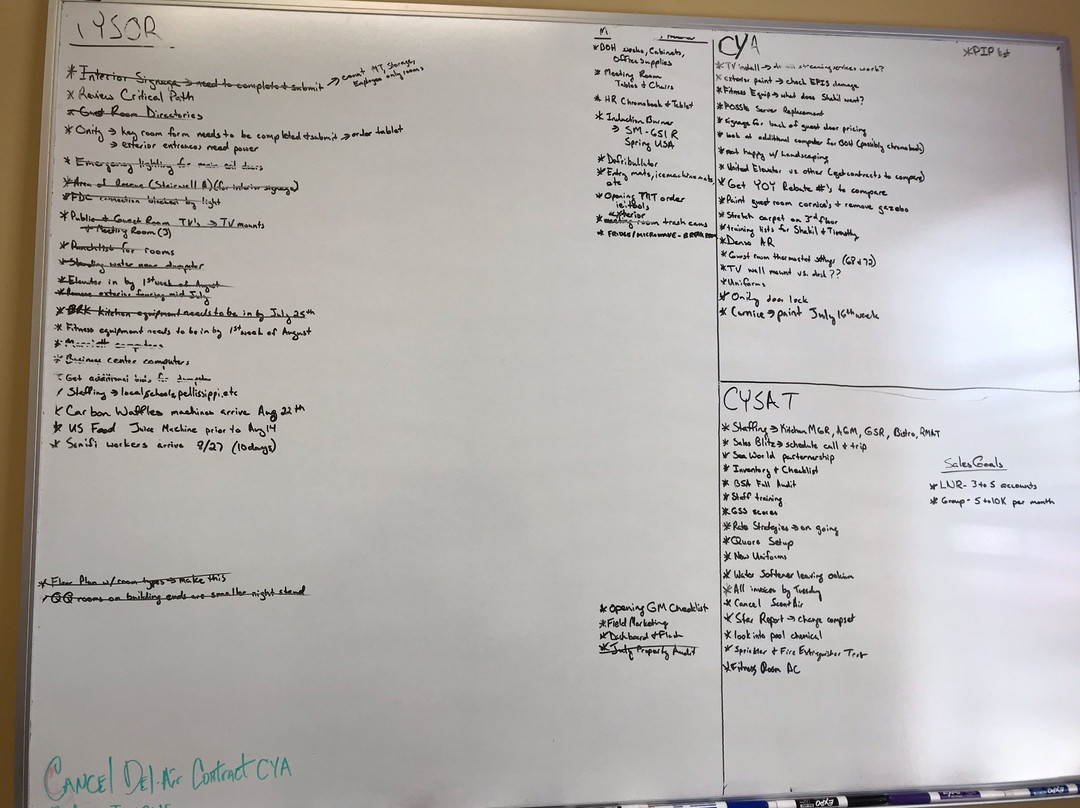 TYSOR
* Interior Signage → need to complete & submit → count MT, Storage,
Employee only rooms
* Review Critical Path
* Guest Room Directories
* Onity → key room form needs to be completed & submit → order tablet
→ exterior entrances need power
* Emergency lighting for main exit doors
* Area of Rescue (Stairwell A) (for interior signage)
* FDC connection blocked by light
* Public & Guest Room TV's → TV mounts
* Meeting Room (3)
* Punchlist for rooms
* Standing water near dumpster
* Elevator in by 1st week of August
* Remove exterior fencing mid July
* BRK Kitchen equipment needs to be in by July 25th
* Fitness equipment needs to be in by 1st week of August
* Marriott computers
* Business center computers
* Get additional bids for dumpster
* Staffing → local schools, pellissippi, etc
* Carbon Waffles machines arrive Aug 22th
* US Food Juice Machine prior to Aug 14
* Sonifi workers arrive 8/27 (10 days)
* Floor Plan w/ room types → make this
* QQ rooms on building ends are smaller night stand
CANCEL Del-Air Contract CYA
* BOH desks, Cabinets,
Office Supplies
* Meeting Room
Tables & Chairs
* HR Chromebook & Tablet
* Induction Burner
→ SM-651 R
Spring USA
* Defribullator
* Entry mats, ice machine mats,
etc
* Opening TMT order
ie: tools
* exterior
meeting room trash cans
* FRIDGE/MICROWAVE - BREAK ROOM
* Opening GM Checklist
* Field Marketing
* Dashboard & Flash
* July Property Audit
CYA
* PIP list
* TV install → do all streaming services work?
* exterior paint → check EFIS damage
* Fitness Equip → what does Shakil want?
* POSSIs Server Replacement
* Signage for back of guest door pricing
* look at additional computer for BOH (possibly chromebook)
* not happy w/ Landscaping
* United Elevator vs other (get contracts to compare)
* Get YOY Rebate #'s to compare
* Paint guest room cornice's & remove gazebo
* Stretch carpet on 3rd floor
* training lists for Shakil & Timothy
* Denso AR
* Guest room thermostat settings (68 & 72)
* TV wall mount vs. desk??
* Uniforms
* Onity door lock
* Cornice → paint July 16th week
CYSAT
* Staffing → Kitchen MGR, AGM, GSR, Bistro, RMAT
* Sales Blitz → schedule call & trip
* Sea World parternership
* Inventory & Checklist
* BSA Full Audit
* Staff training
* GSS scores
* Rate Strategies → on going
* Quore Setup
* New Uniforms
* Water Softener leaving calcium
* All invoices by Tuesday
* Cancel Scent Air
* Star Report → change compset
* look into pool chemical
* Sprinkler & Fire Extinguisher Test
* Fitness Room AC
Sales Goals
* LNR - 3 to 5 accounts
* Group - 5 to 10K per month
EXPO
EXPO
EXPO